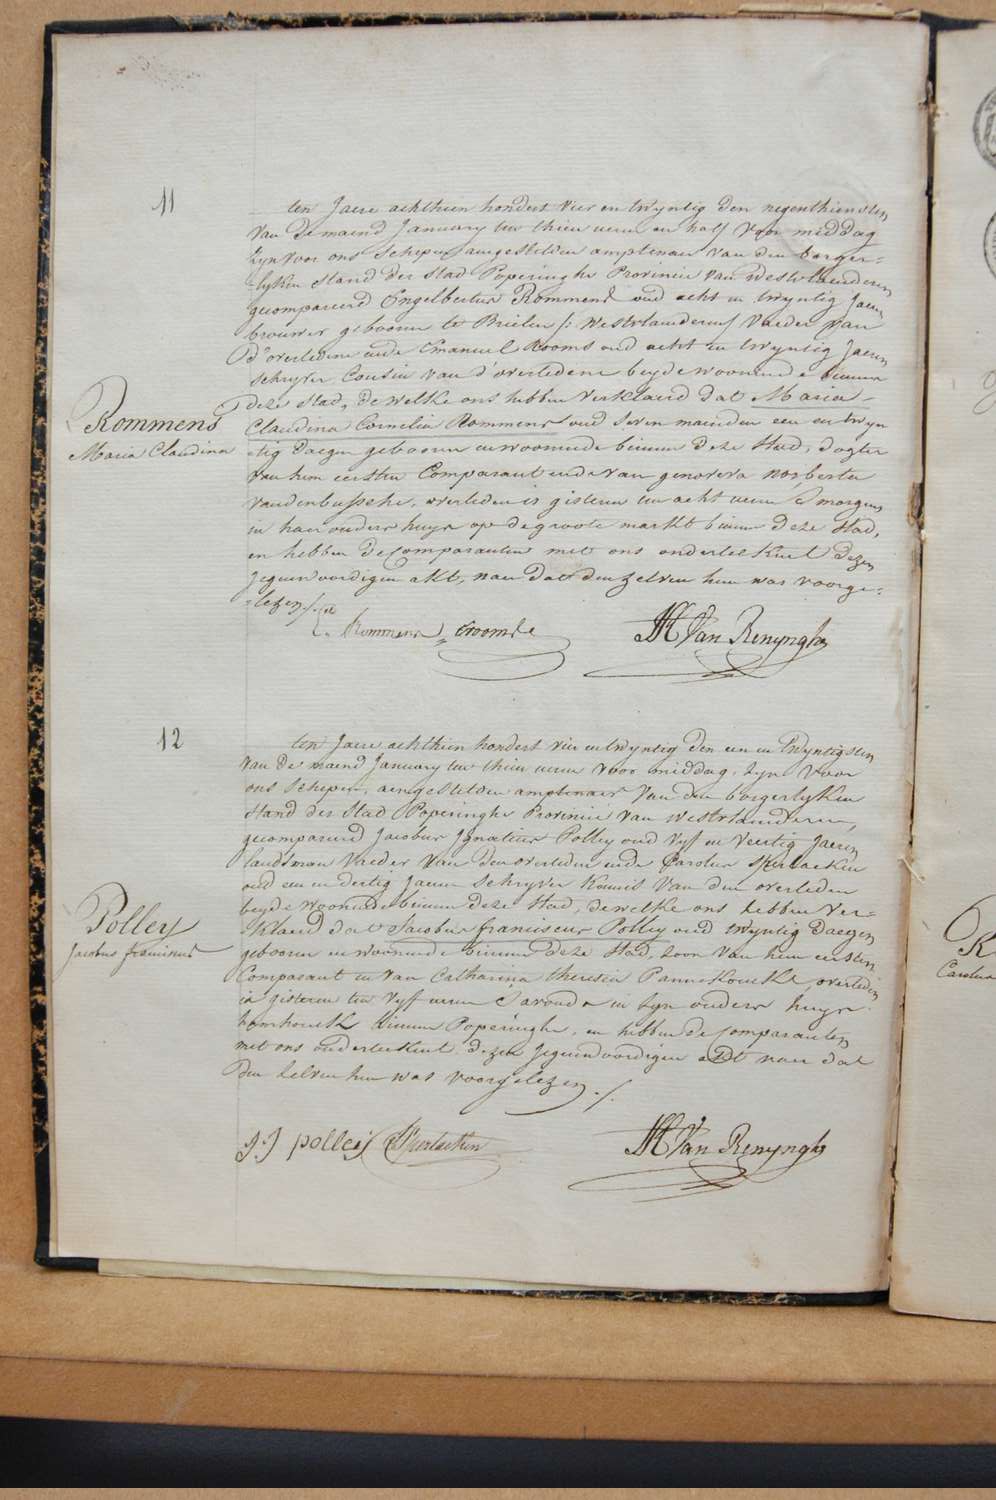 11
ten Jaere achthien hondert vier en twyntig den negenthiensten
van de maend January ten thien uren en half voor middag
zyn voor ons Schepen aengestelden amptenaer van den borger-
-lyken Stand der Stad Poperinghe Provincie van Westvlaenderen
gecompareerd Engelbertus Rommens oud acht en twyntig Jaeren
brouwer geboren te Brielen /: Westvlaenderen / Vaeder van
d'overledene ende Emanuel Rooms oud acht en twyntig Jaeren
Schryver Cousin van d'overledene beyde woonende binnen
deze Stad, dewelke ons hebben verklaerd dat Maria
Rommens
Claudina Cornelia Rommens oud seven maenden een en twyn
Maria Claudina
-tig daegen geboren en woonende binnen deze Stad, dogter
van hem eersten Comparant ende van genoveva norberta
vandenbussche, overleden is gisteren ten acht uren S'morgens
in haer ouders huys op de groote markt binnen deze Stad,
en hebben de Comparanten met ons onderteekent dezen
Jegenwoordigen akt, naer dat den zelven hun was voorge-
-lezen ./.
E. Rommens Erooms HVan Renynghe
12
ten Jaere achthien hondert vier en twyntig den een en twyntigsten
van de maend January ten thien uren voor middag, zyn voor
ons Schepen, aengestelden amptenaer van den borgerlyken
Stand der Stad Poperinghe Provincie van Westvlaenderen,
gecompareerd Jacobus Ignatius Polley oud vyf en veertig Jaeren
landsman Vaeder van den overleden ende Carolus Sperlaeken
oud een en dertig Jaeren Schryver Kennis van den overleden
beyde woonende binnen deze Stad, dewelke ons hebben ver-
Polley
-klaerd dat Jacobus franciscus Polley oud twyntig daegen
Jacobus franciscus
geboren en woonende binnen deze Stad, zoon van hem eersten
Comparant en van Catharina theresia Pannekoucke, overleden
is gisteren ten vyf uren S'avonds in zyn ouders huys
binnen Poperinghe, en hebben de Comparanten
met ons onderteekent dezen Jegenwoordigen akt naer dat
den zelven hun was voorgelezen ./.
JJ polleij CSperlaeken HVan Renynghe
Carolus